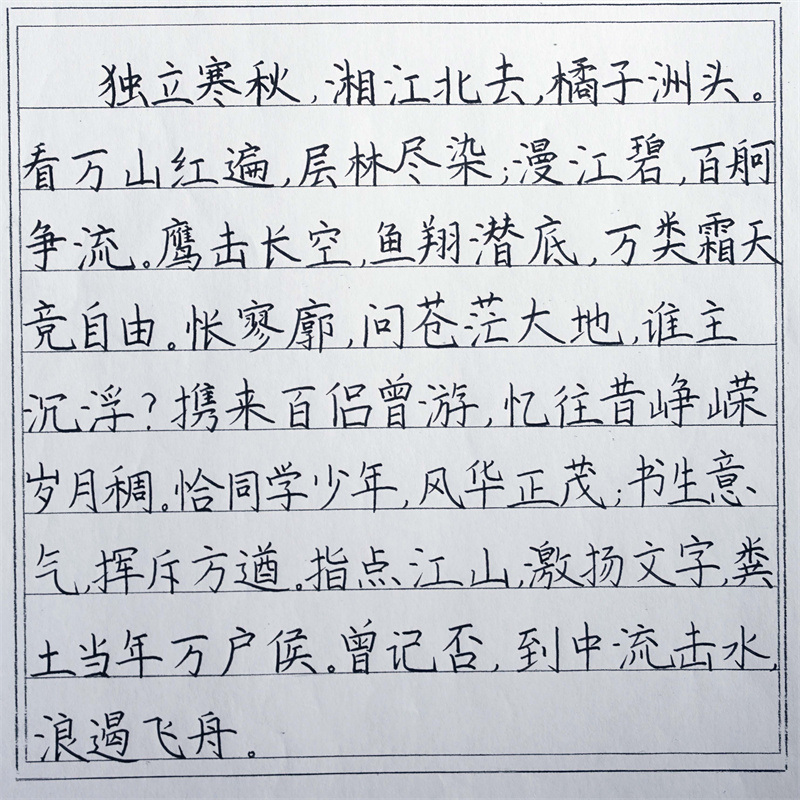 独立寒秋,湘江北去,橘子洲头。
看万山红遍,层林尽染;漫江碧,百舸
争流。鹰击长空,鱼翔潜底,万类霜天
竞自由。怅寥廓,问苍茫大地,谁主
沉浮?携来百侣曾游,忆往昔峥嵘
岁月稠。恰同学少年,风华正茂;书生意
气,挥斥方遒。指点江山,激扬文字,粪
土当年万户侯。曾记否,到中流击水,
浪遏飞舟。